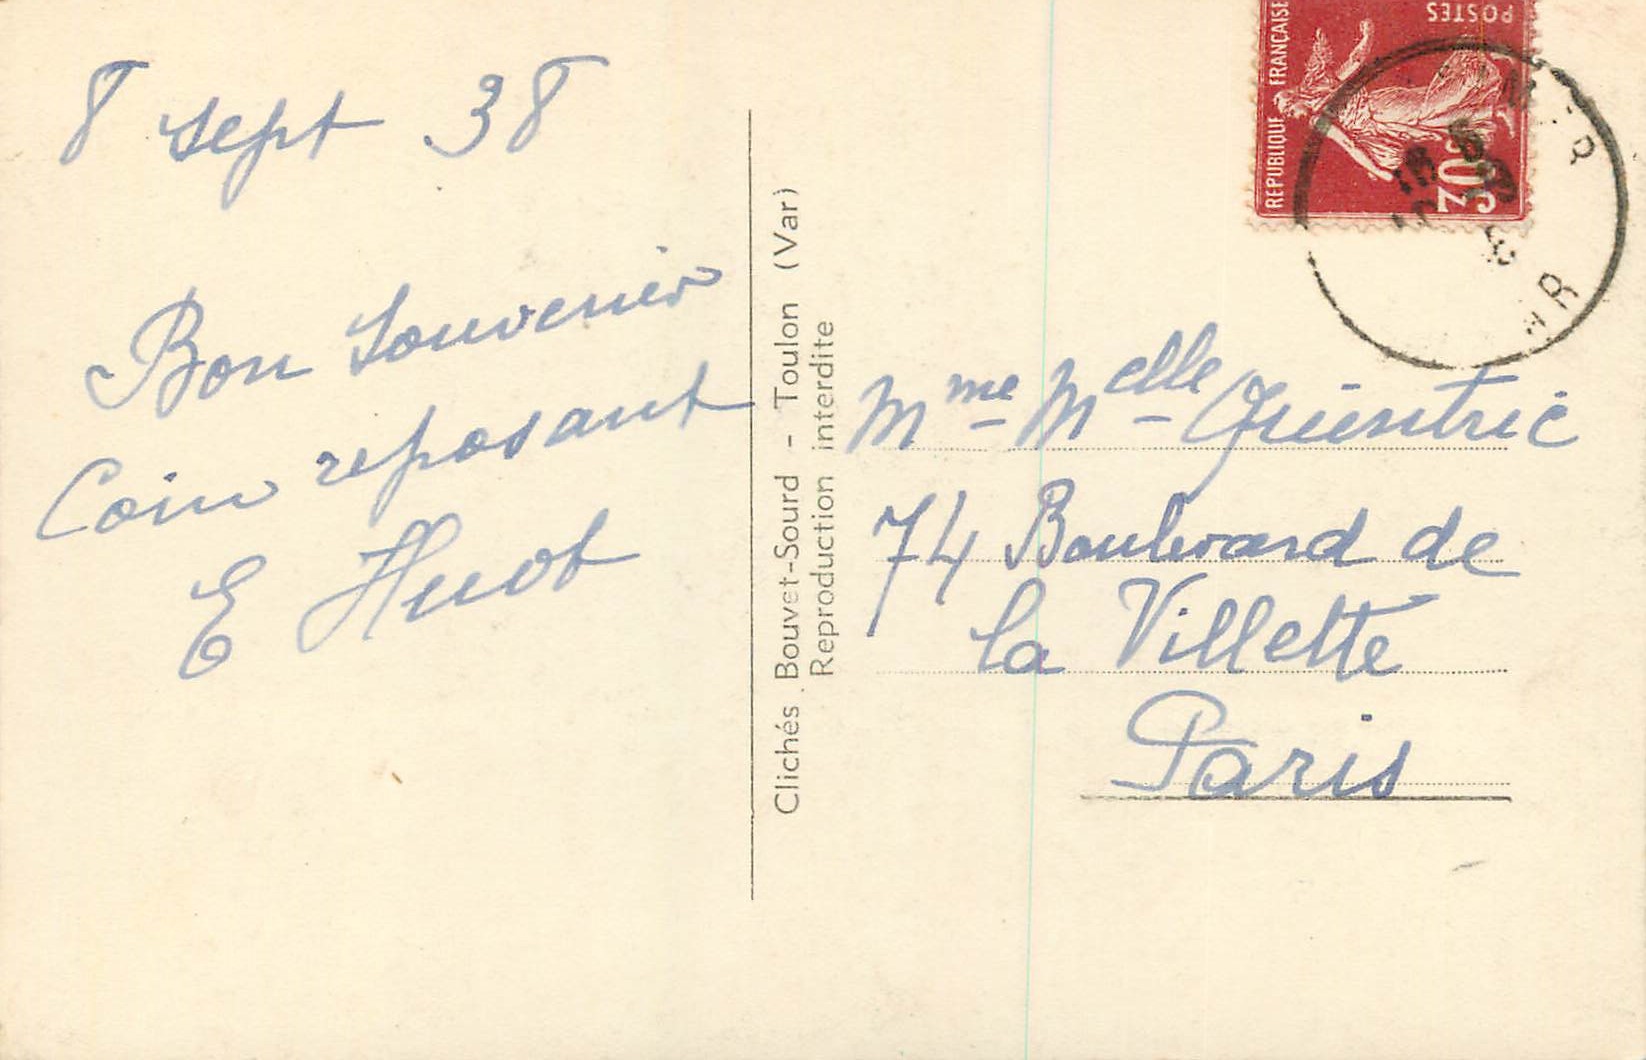 8 sept 38
Bon souvenir
Coin reposant
E Huot
Clichés Bouvet-Sourd - Toulon (Var)
Reproduction interdite
REPUBLIQUE FRANÇAISE
POSTES
30c
Mme Melle Quientric
74 Boulevard de
la Villette
Paris